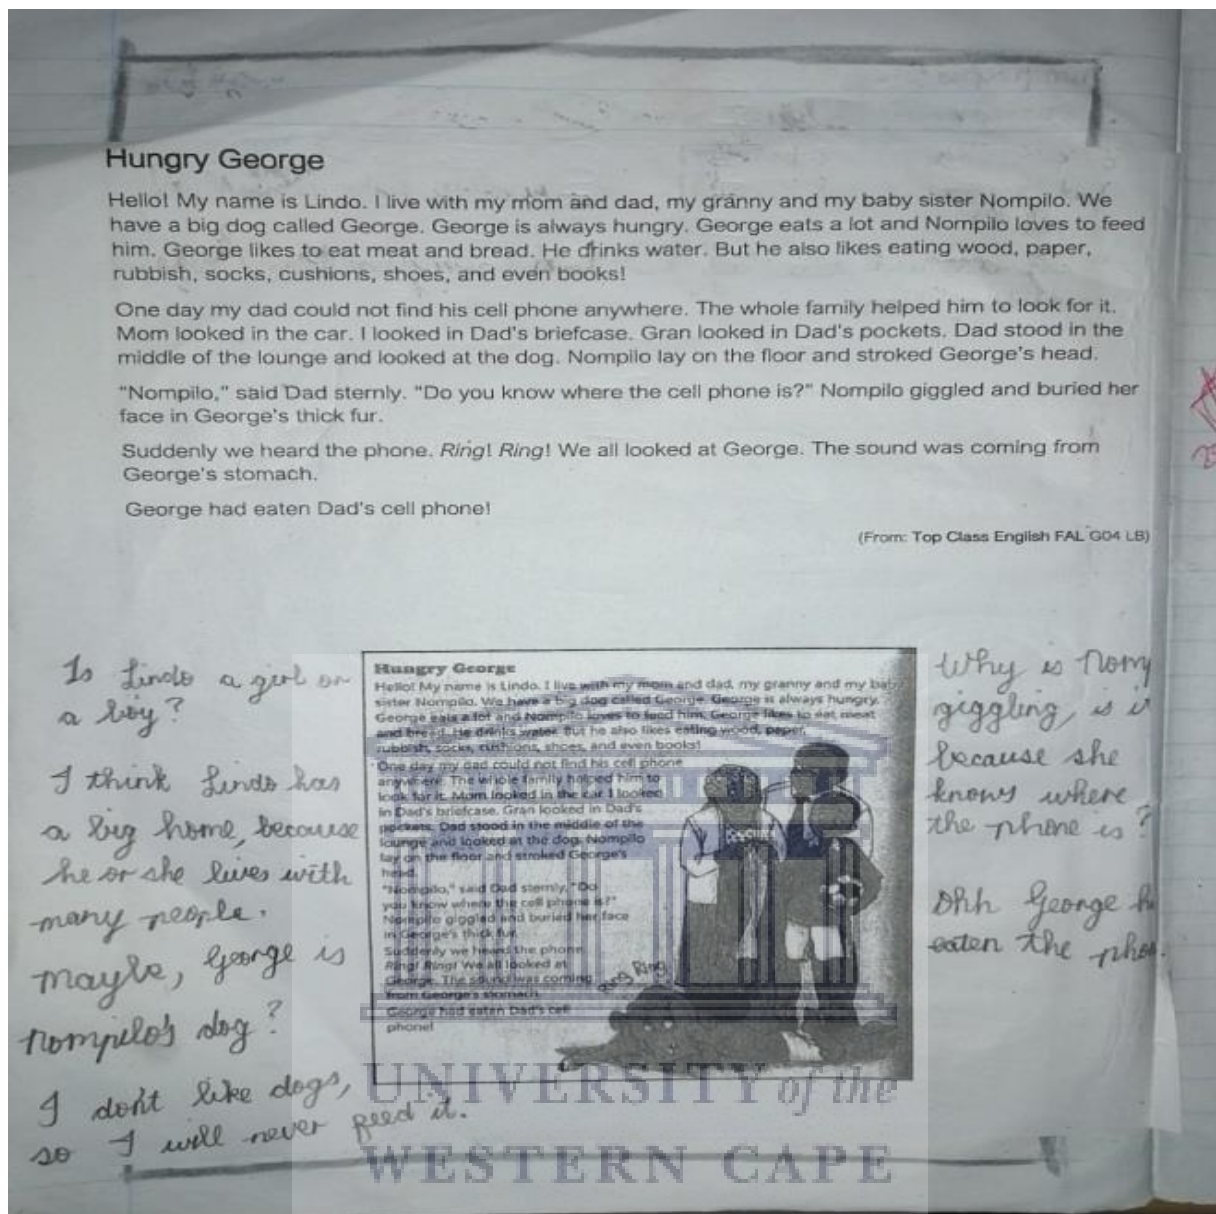 Hungry George
Hello! My name is Lindo. I live with my mom and dad, my granny and my baby sister Nompilo. We
have a big dog called George. George is always hungry. George eats a lot and Nompilo loves to feed
him. George likes to eat meat and bread. He drinks water. But he also likes eating wood, paper,
rubbish, socks, cushions, shoes, and even books!
One day my dad could not find his cell phone anywhere. The whole family helped him to look for it.
Mom looked in the car. I looked in Dad's briefcase. Gran looked in Dad's pockets. Dad stood in the
middle of the lounge and looked at the dog. Nompilo lay on the floor and stroked George's head.
"Nompilo," said Dad sternly. "Do you know where the cell phone is?" Nompilo giggled and buried her
face in George's thick fur.
Suddenly we heard the phone. Ring! Ring! We all looked at George. The sound was coming from
George's stomach.
George had eaten Dad's cell phone!
(From: Top Class English FAL G04 LB)
Is Lindo a girl or
a boy?
I think Lindo has
a big home, because
he or she lives with
many people.
maybe, George is
nompilo's dog?
I don't like dogs,
so I will never feed it.
Hungry George
Hello! My name is Lindo. I live with my mom and dad, my granny and my baby
sister Nompilo. We have a big dog called George. George is always hungry.
George eats a lot and Nompilo loves to feed him. George likes to eat meat
and bread. He drinks water. But he also likes eating wood, paper,
rubbish, socks, cushions, shoes, and even books!
One day my dad could not find his cell phone
anywhere. The whole family helped him to
look for it. Mom looked in the car. I looked
in Dad's briefcase. Gran looked in Dad's
pockets. Dad stood in the middle of the
lounge and looked at the dog. Nompilo
lay on the floor and stroked George's
head.
"Nompilo," said Dad sternly. "Do
you know where the cell phone is?"
Nompilo giggled and buried her face
in George's thick fur.
Suddenly we heard the phone.
Ring! Ring! We all looked at
George. The sound was coming
from George's stomach.
George had eaten Dad's cell
phone!
Ring Ring
Why is Nom
giggling, is i
because she
knows where
the phone is?
Ohh George h
eaten the pho
UNIVERSITY of the
WESTERN CAPE